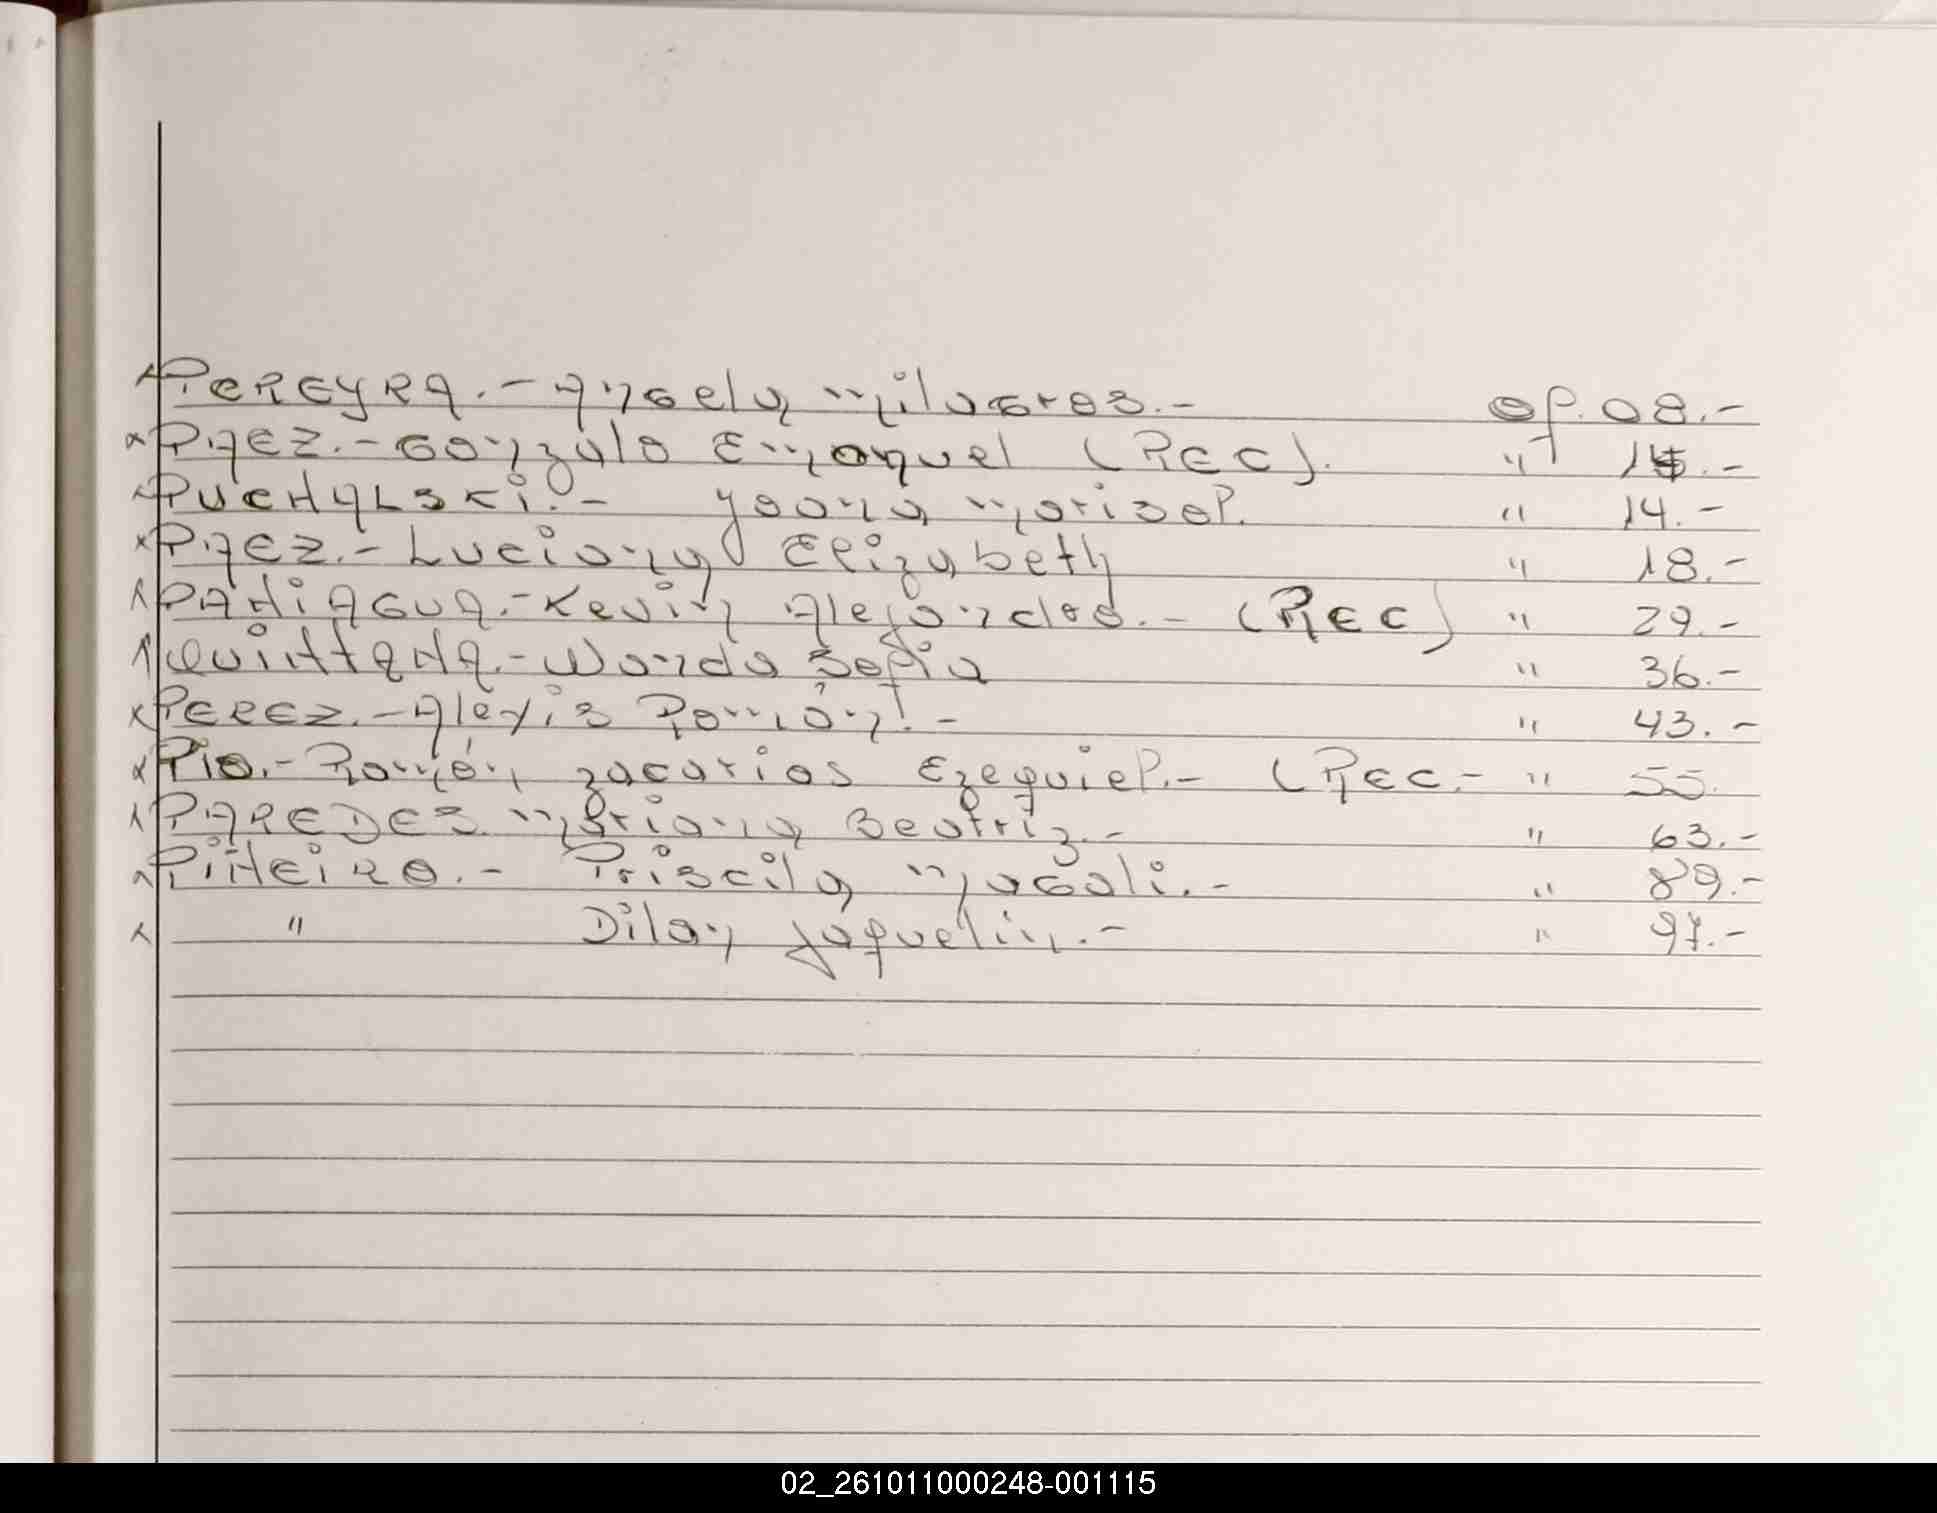 PEREYRA.- Angela Milagros.- Of. 08.-
PAEZ.- Gonzalo Emanuel (REC). " 14.-
PUCHALSKI.- Yoana Marisol. " 14.-
PAEZ.- Luciana Elizabeth " 18.-
PANIAGUA.- Kevin Alejandro.- (REC) " 29.-
QUINTANA.- Wanda Sofia " 36.-
PEREZ.- Alexis Ramón.- " 43.-
Pio.- Ramón Zacarias Ezequiel.- (REC.- " 55.
PAREDES Mariana Beatriz.- " 63.-
PIÑEIRO.- Priscila Magali.- " 89.-
" Dilan Jaquelin.- " 97.-
02_261011000248-001115